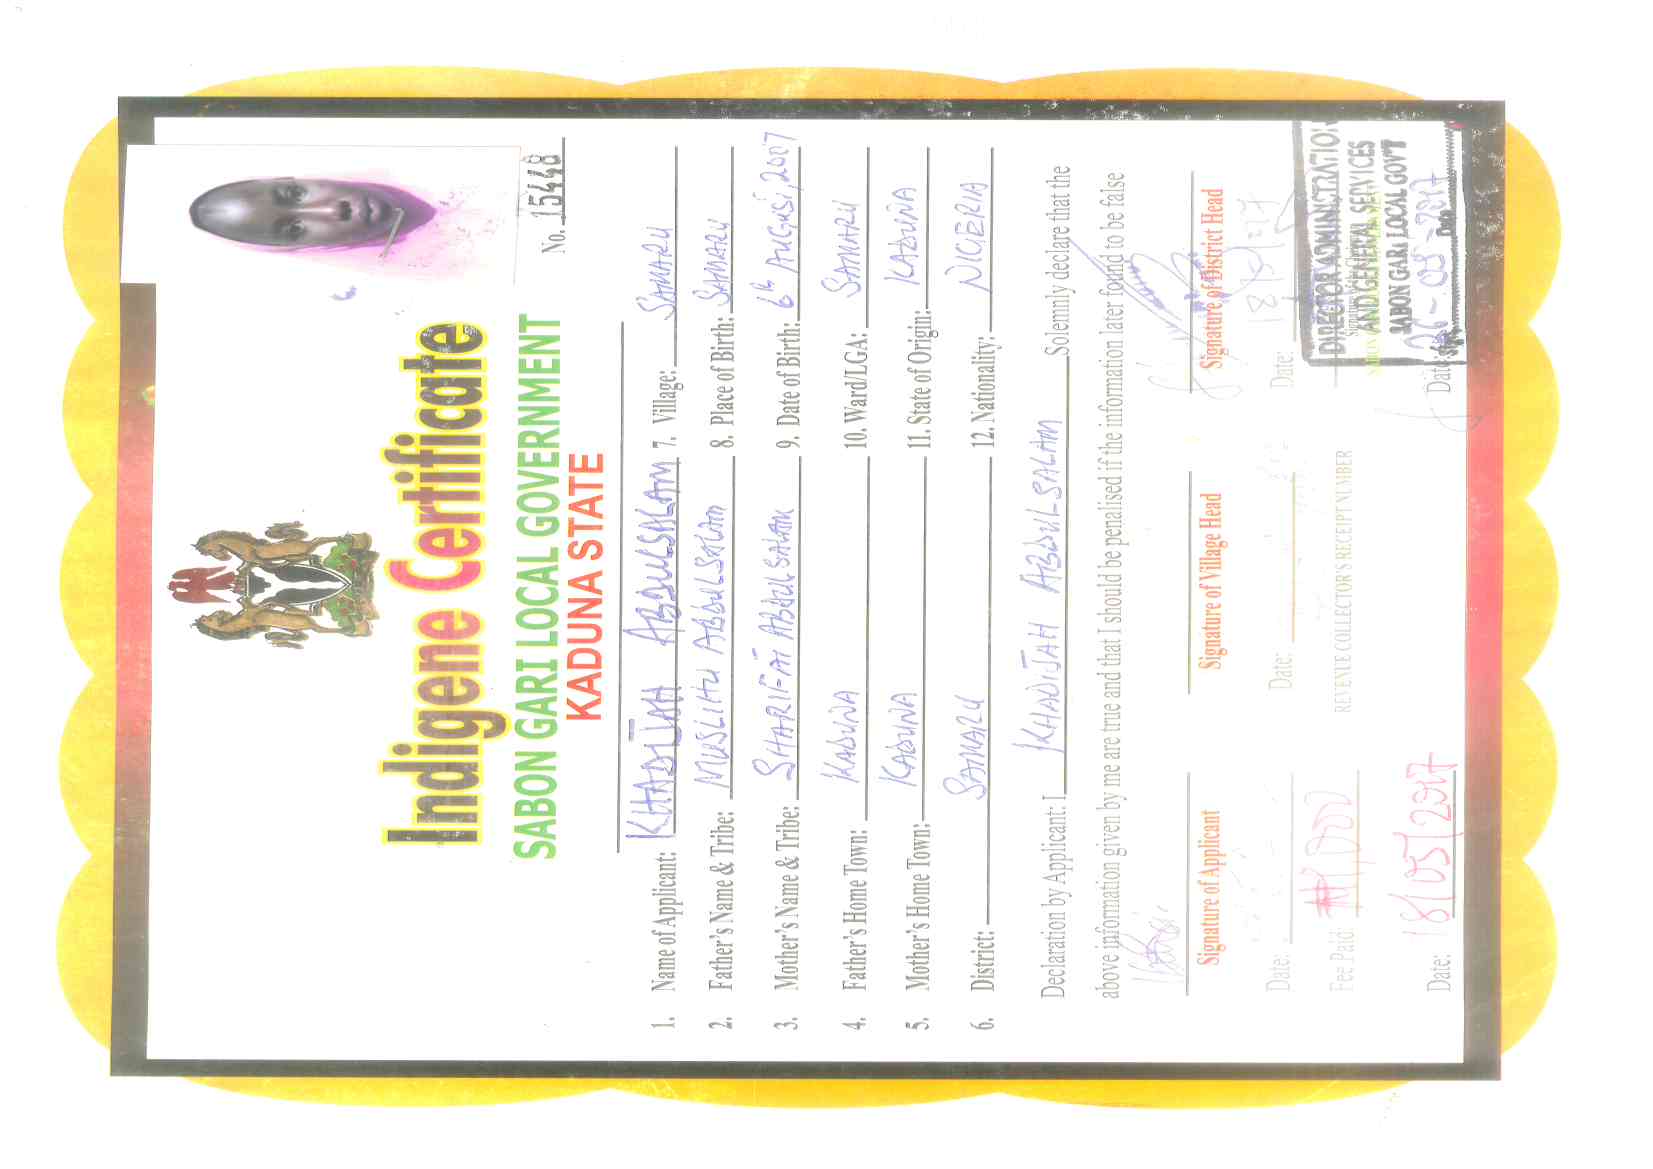 No. 15448
Indigene Certificate
SABON GARI LOCAL GOVERNMENT
KADUNA STATE
1. Name of Applicant: KHADIJAH ABDULSALAM
7. Village: SAMARU
2. Father's Name & Tribe: MUSLIHU ABDULSALAM
8. Place of Birth: SAMARU
3. Mother's Name & Tribe: SHARIFAT ABDULSALAM
9. Date of Birth: 6th AUGUST, 2007
4. Father's Home Town: KADUNA
10. Ward/LGA: SAMARU
5. Mother's Home Town: KADUNA
11. State of Origin: KADUNA
6. District: SAMARU
12. Nationality: NIGERIA
Declaration by Applicant: I KHADIJAH ABDULSALAM Solemnly declare that the
above information given by me are true and that I should be penalised if the information later found to be false
Signature of Applicant
Signature of Village Head
Signature of District Head
Date:
Date:
Date:
Fee Paid:
REVENUE COLLECTOR'S RECEIPT NUMBER
DIRECTOR ADMINISTRATION
AND GENERAL SERVICES
SABON GARI LOCAL GOVT
Date: 18/05/2017
Date: